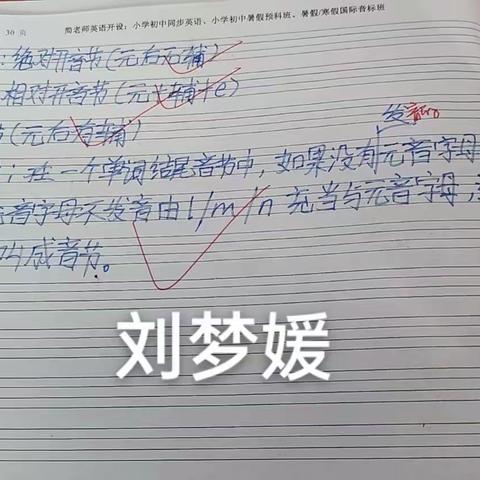 30 页
简老师英语开设：小学初中同步英语、小学初中暑假预科班、暑假/寒假国际音标班
：绝对开音节(元后无辅)
相对开音节(元+辅+e)
节(元后有辅)
发音的
：在一个单词结尾音节中，如果没有元音字母
音字母不发音由l/m/n 充当与元音字母，
叫成音节。
刘梦媛